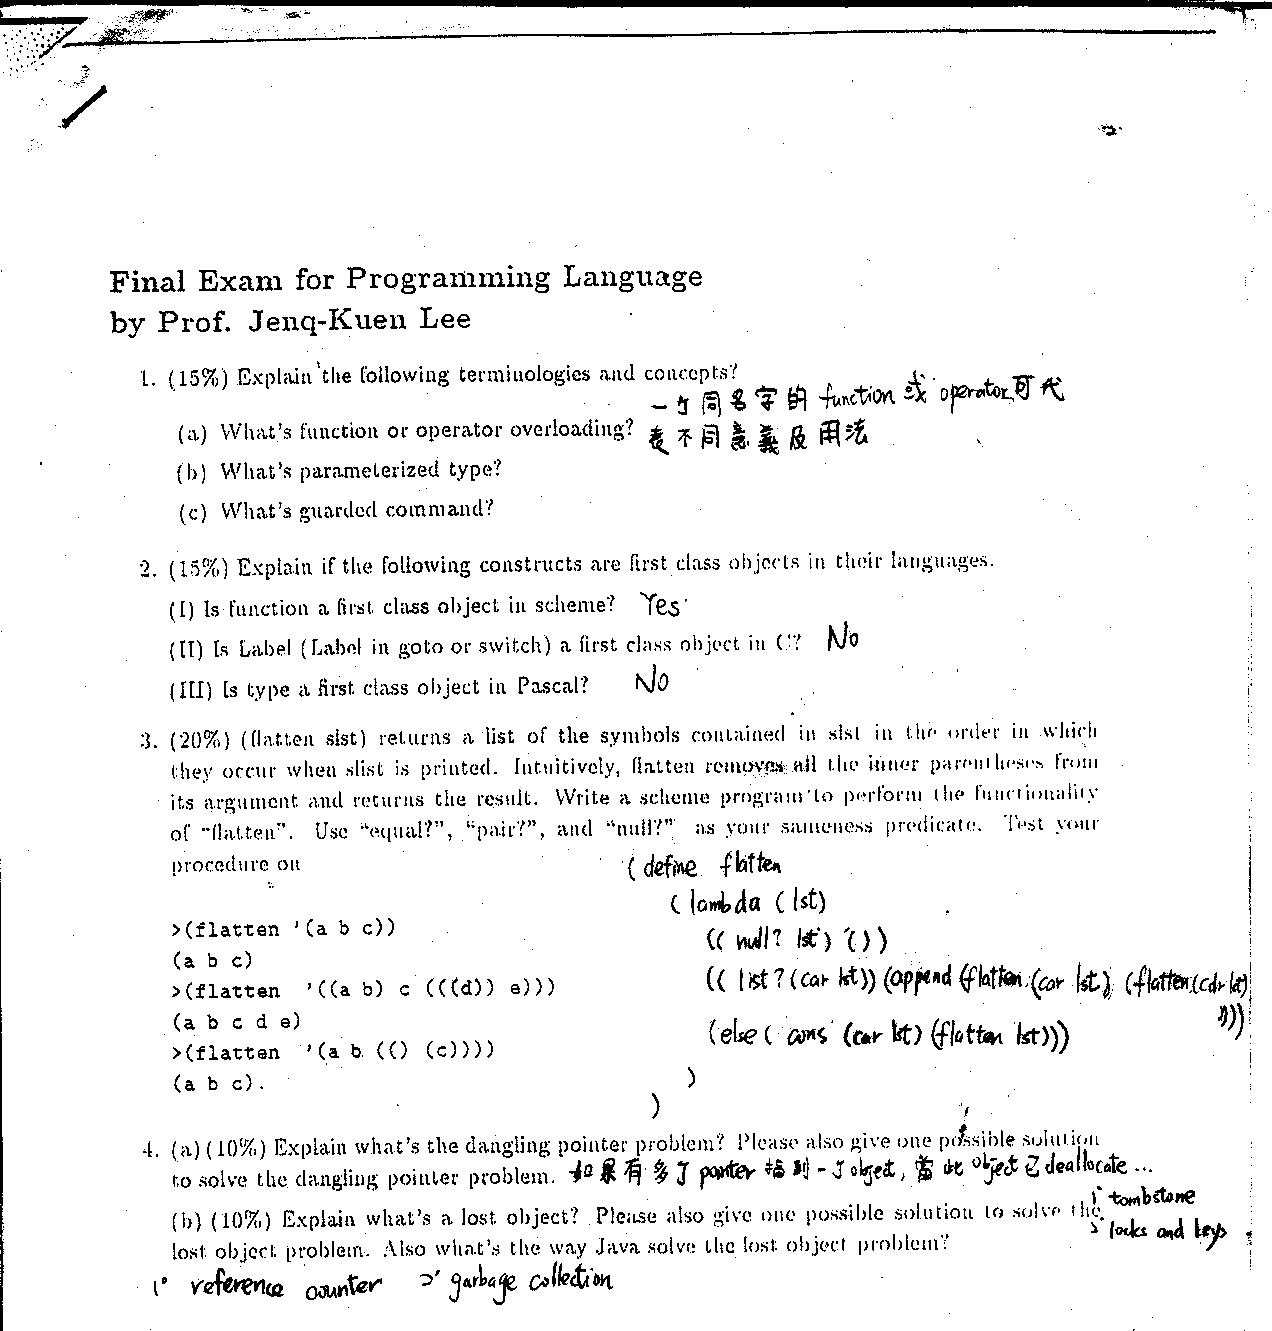 Final Exam for Programming Language
by Prof. Jenq-Kuen Lee
1. (15%) Explain the following terminologies and concepts?
一个同名字的 function 或 operator 可代
(a) What's function or operator overloading?
表不同意義及用法
(b) What's parameterized type?
(c) What's guarded command?
2. (15%) Explain if the following constructs are first class objects in their languages.
(I) Is function a first class object in scheme? Yes
(II) Is Label (Label in goto or switch) a first class object in C? No
(III) Is type a first class object in Pascal? No
3. (20%) (flatten slst) returns a list of the symbols contained in slst in the order in which
they occur when slist is printed. Intuitively, flatten removes all the inner parentheses from
its argument and returns the result. Write a scheme program to perform the functionality
of "flatten". Use "equal?", "pair?", and "null?" as your sameness predicate. Test your
procedure on
(define flatten
(lambda (lst)
>(flatten '(a b c))
((null? lst) '())
(a b c)
((list? (car lst)) (append (flatten (car lst), (flatten (cdr lst)
>(flatten '((a b) c (((d)) e)))
))))
(a b c d e)
(else (cons (car lst) (flatten lst)))
>(flatten '(a b (() (c))))
)
(a b c).
)
4. (a)(10%) Explain what's the dangling pointer problem? Please also give one possible solution
to solve the dangling pointer problem. 如果有多个 pointer 指到一个 object, 當此 object 已 deallocate ...
1° tombstone
(b) (10%) Explain what's a lost object? Please also give one possible solution to solve the
2° locks and keys
lost object problem. Also what's the way Java solve the lost object problem?
1° reference counter 2° garbage collection